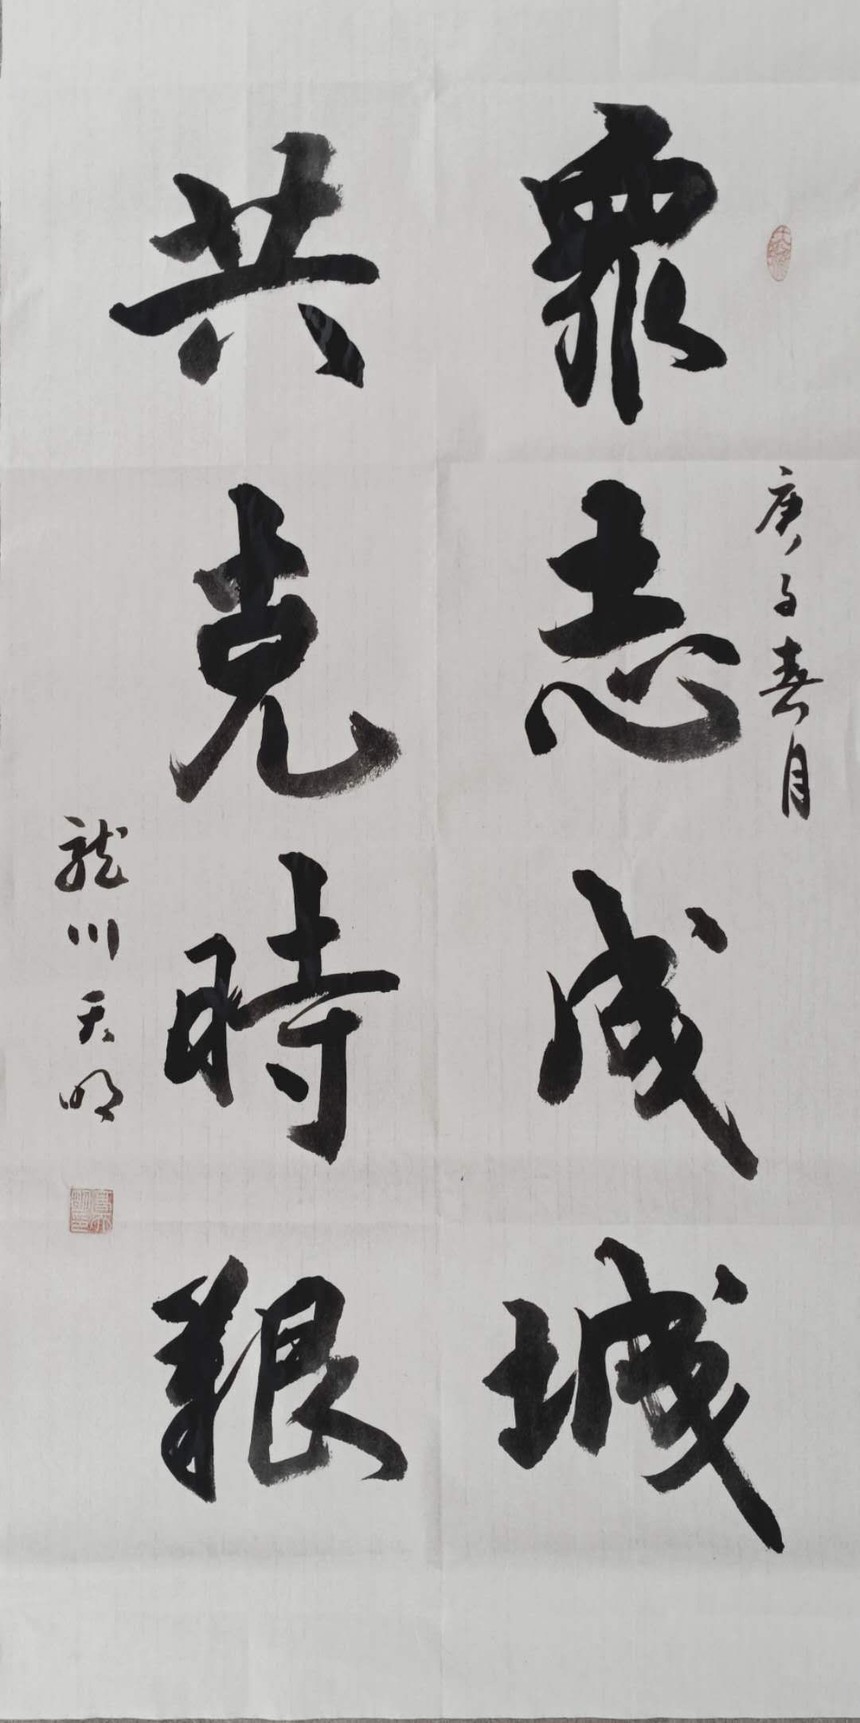 庚子春月
眾志成城
共克時艱
龍川天明